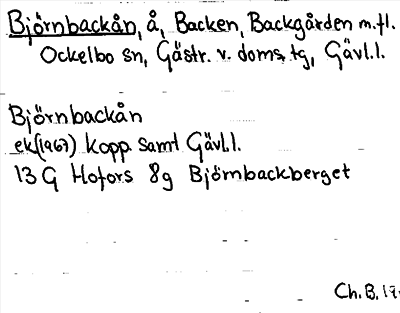 Björnbackån, å, Backen, Backgården m.fl.
Ockelbo sn, Gästr. v. doms. tg, Gävl.l.
Björnbackån
ek(1967) Kopp. samt Gävl.l.
13 G Hofors 8g Björnbackberget
Ch.B. 19